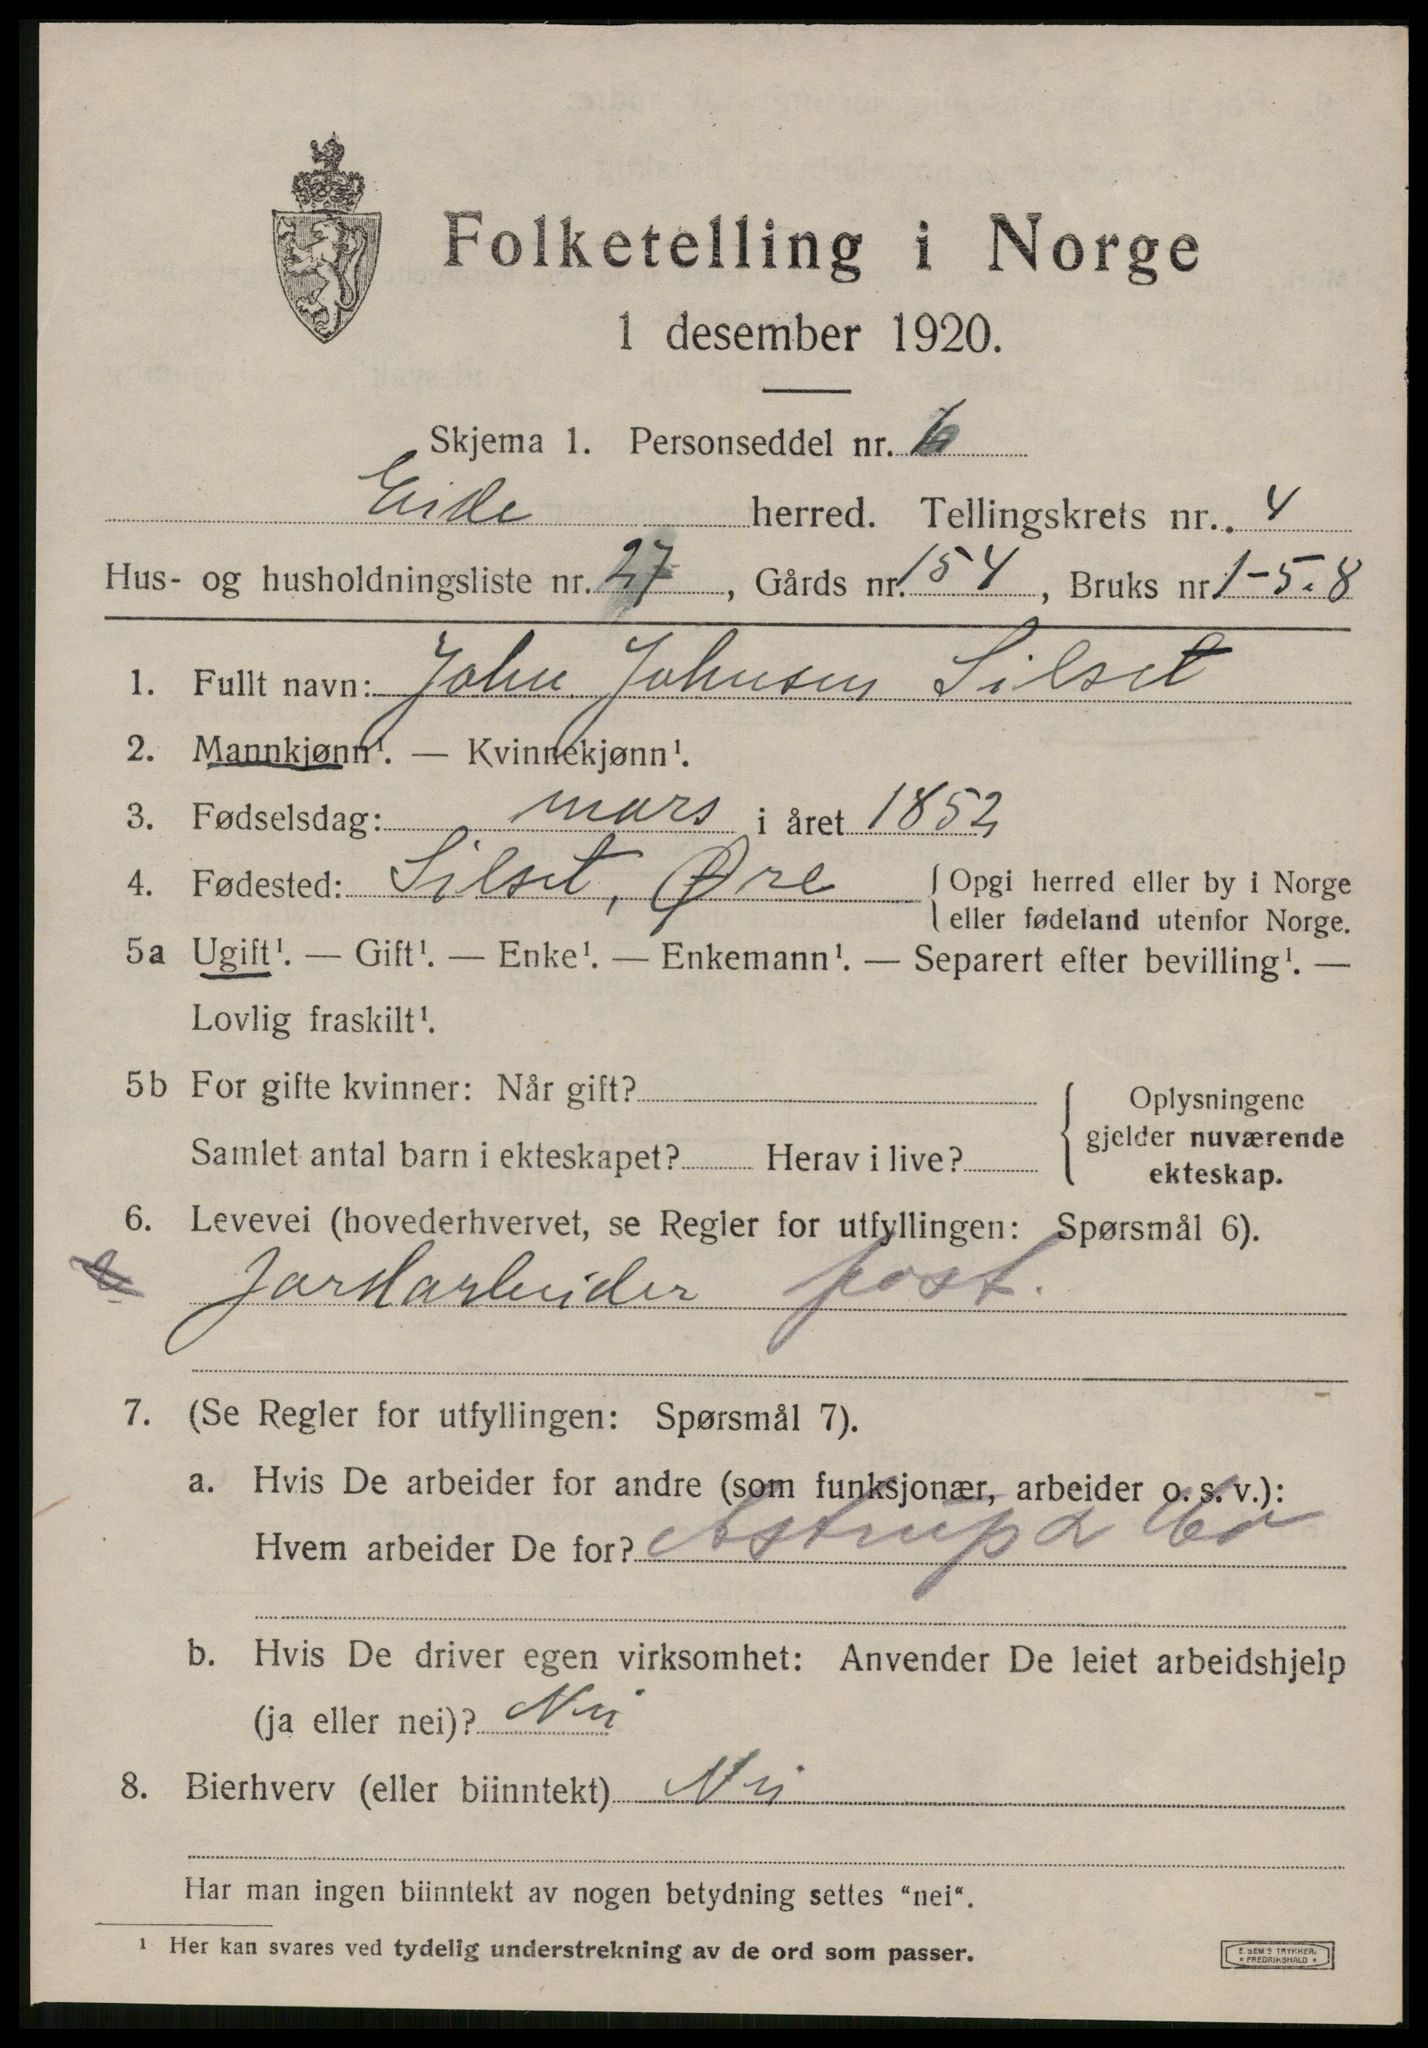 Folketelling i Norge
1 desember 1920.
Skjema 1. Personseddel nr. 6
Eide herred. Tellingskrets nr. 4
Hus- og husholdningsliste nr. 27, Gårds nr. 154, Bruks nr 1-5.8
1. Fullt navn: John Johnsen Silset
2. Mannkjønn¹. — Kvinnekjønn¹.
3. Fødselsdag: mars i året 1852
4. Fødested: Silset, Øre { Opgi herred eller by i Norge
eller fødeland utenfor Norge.
5a Ugift¹. — Gift¹. — Enke¹. — Enkemann¹. — Separert efter bevilling¹. —
Lovlig fraskilt¹.
5b For gifte kvinner: Når gift?
Samlet antal barn i ekteskapet? Herav i live?
Oplysningene
gjelder nuværende
ekteskap.
6. Levevei (hovederhvervet, se Regler for utfyllingen: Spørsmål 6).
Jordarbeider post.
7. (Se Regler for utfyllingen: Spørsmål 7).
a. Hvis De arbeider for andre (som funksjonær, arbeider o. s. v.):
Hvem arbeider De for? Astrup & Co
b. Hvis De driver egen virksomhet: Anvender De leiet arbeidshjelp
(ja eller nei)? Nei
8. Bierhverv (eller biinntekt) Nei
Har man ingen biinntekt av nogen betydning settes “nei“.
¹ Her kan svares ved tydelig understrekning av de ord som passer.
E. SEM'S TRYKKERI
* FREDRIKSHALD *